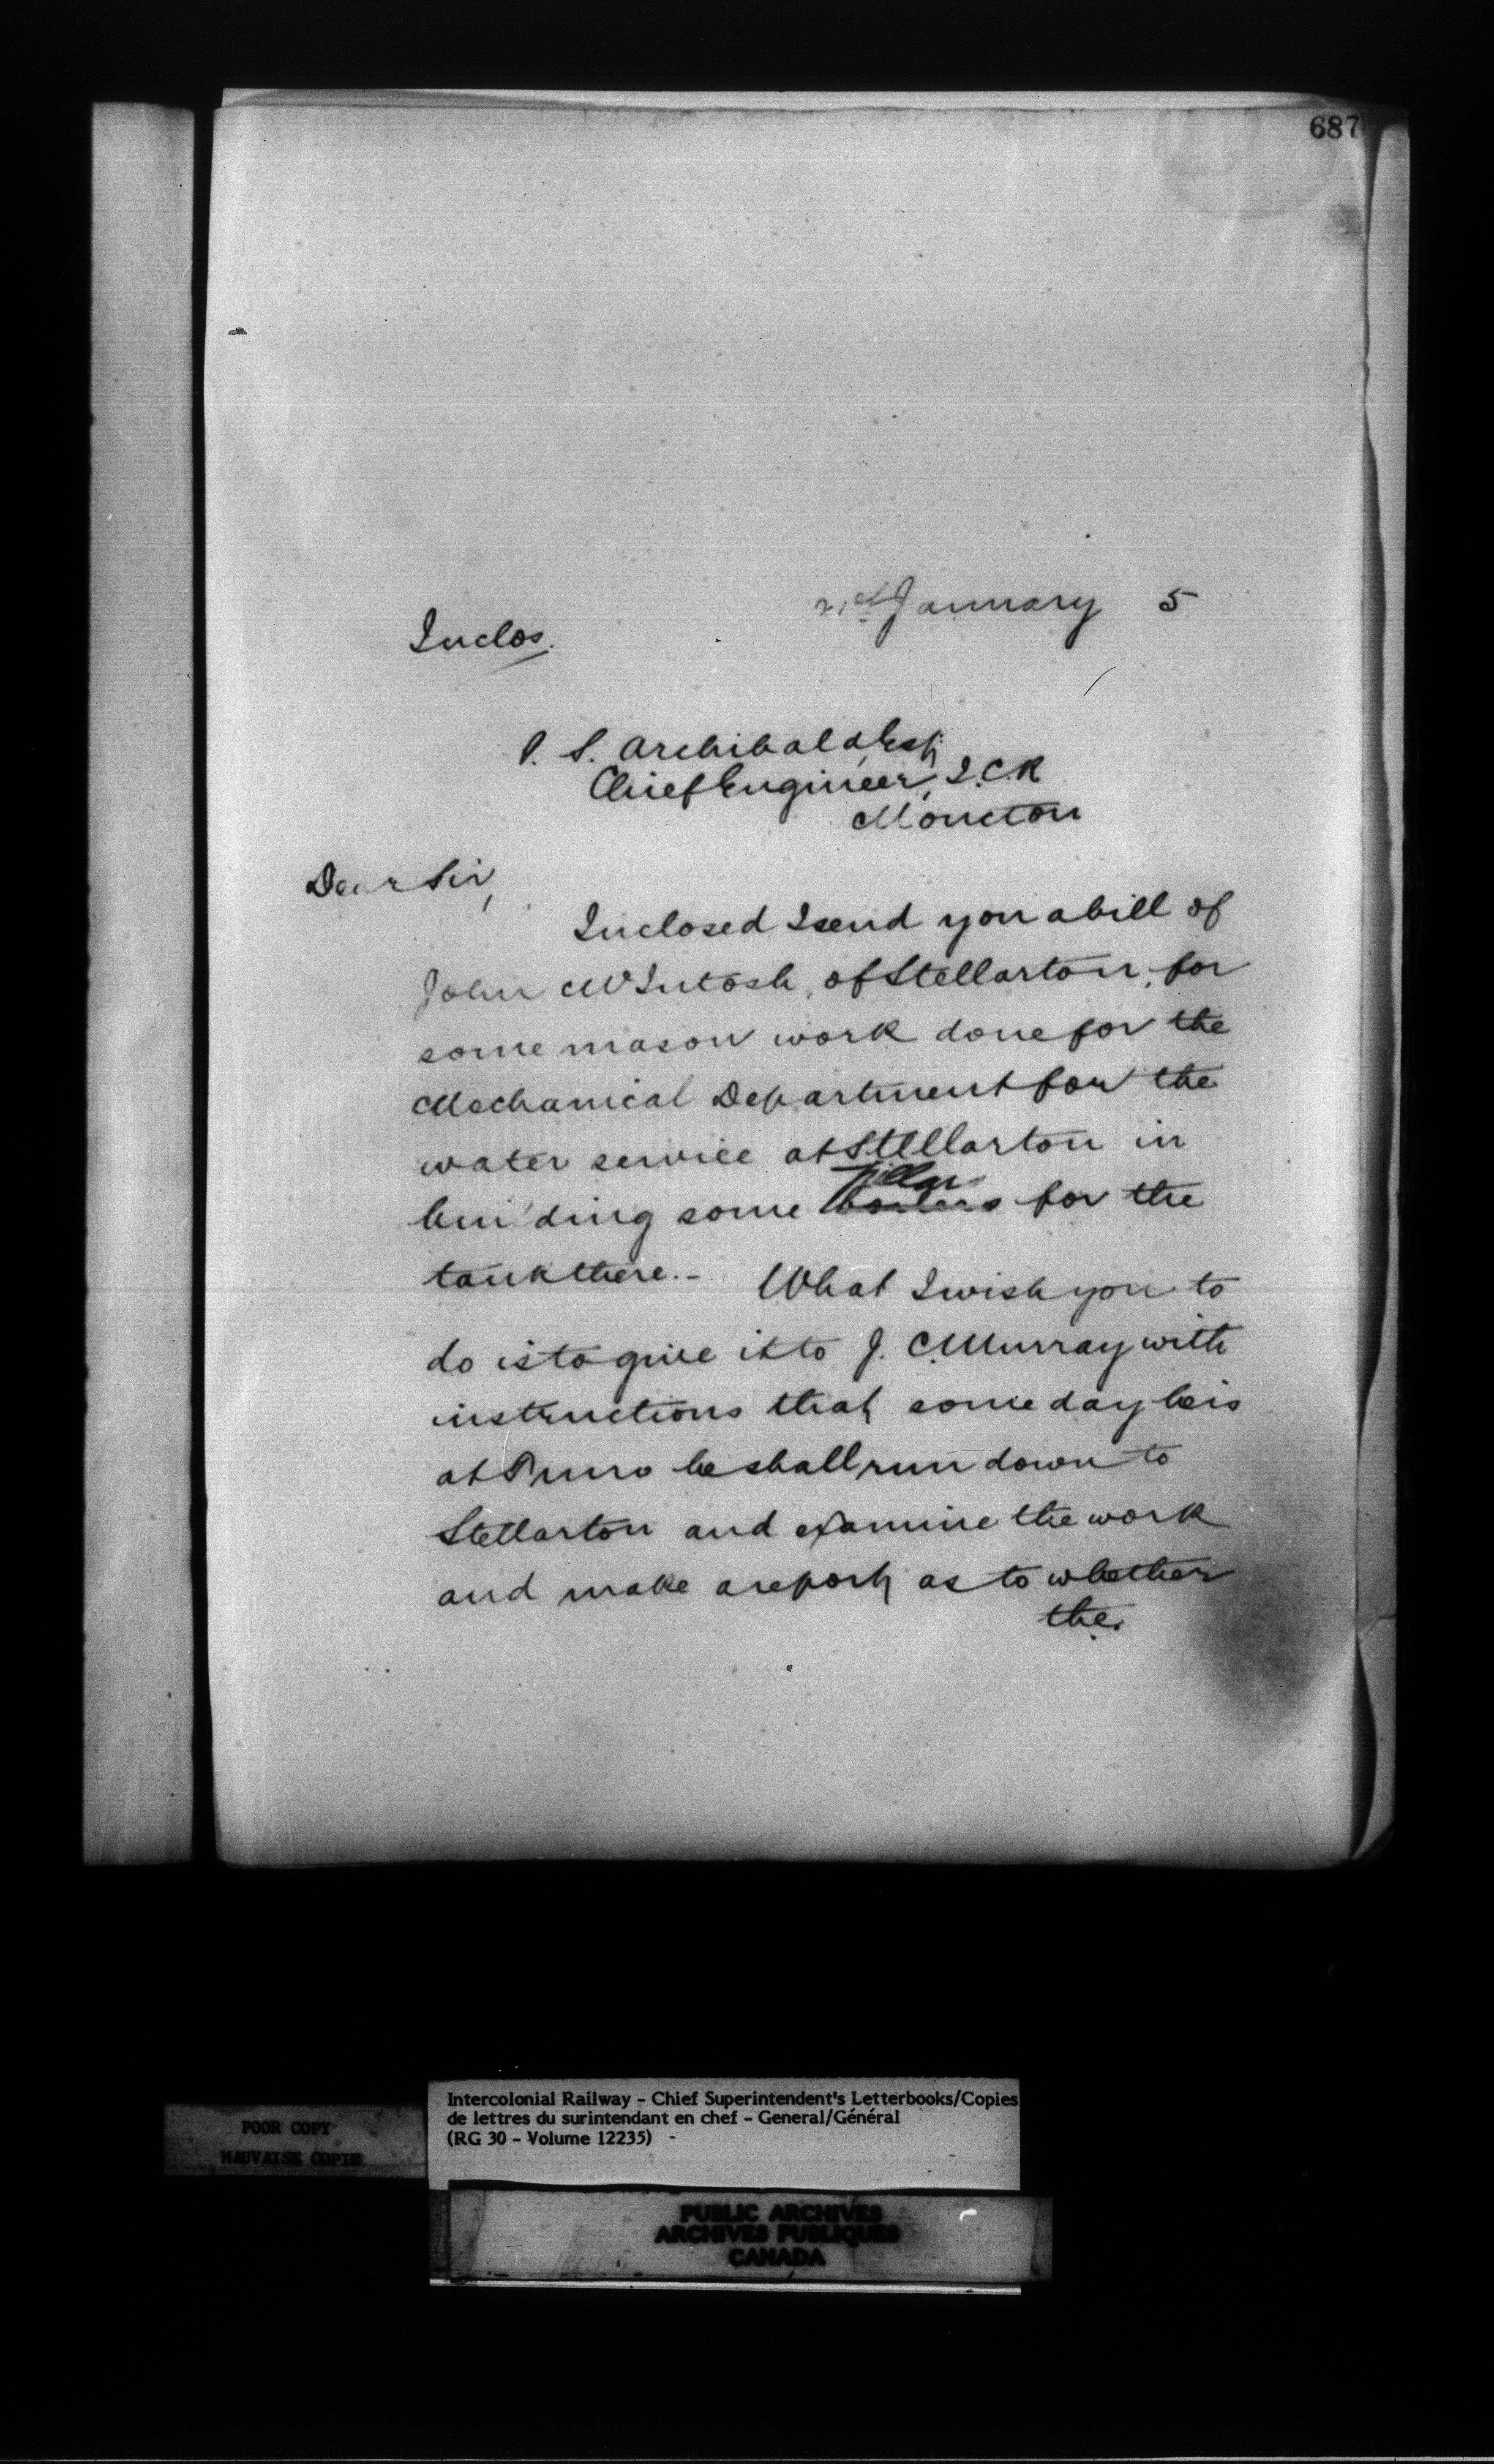 687
January 5
Inclos.
P. S. Archibald, Esq.
Chief Engineer, I.C.R
Moncton
Dear Sir,
Inclosed I send you a bill of
John McIntosh, of Stellarton, for
some mason work done for the
Mechanical Department for the
water service at Stellarton in
pillars
building some for the
tank there.- What I wish you to
do is to give it to J. C. Murray with
instructions that some day he is
at Truro he shall run down to
Stellarton and examine the work
and make a report as to whether
the
POOR COPY
MAUVAISE COPIE
Intercolonial Railway - Chief Superintendent's Letterbooks/Copies
de lettres du surintendant en chef - General/Général
(RG 30 - Volume 12235) -
PUBLIC ARCHIVES
ARCHIVES PUBLIQUES
CANADA